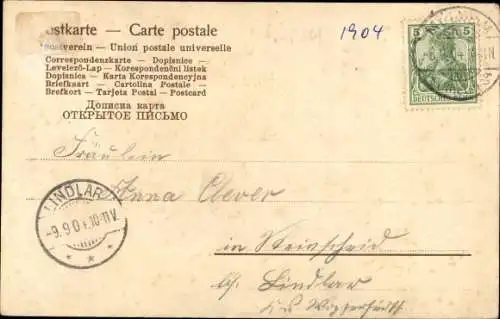 ostkarte - Carte postale
ostverein - Union postale universelle
Correspondenzkarte - Dopisnice -
Levelező-Lap - Korespondenční lístek
Dopisnica - Karta Korespondencyjna
Briefkaart - Cartolina Postale -
Brefkort - Tarjeta Postal - Postcard
Дописна карта
ОТКРЫТОЕ ПИСЬМО
1904
5 5
DEUTSCHES
Fräulein
Anna Clever
LINDLAR
-9.9.04.10-11V.
* * *
in
bz. Lindlar
Wipperfürth